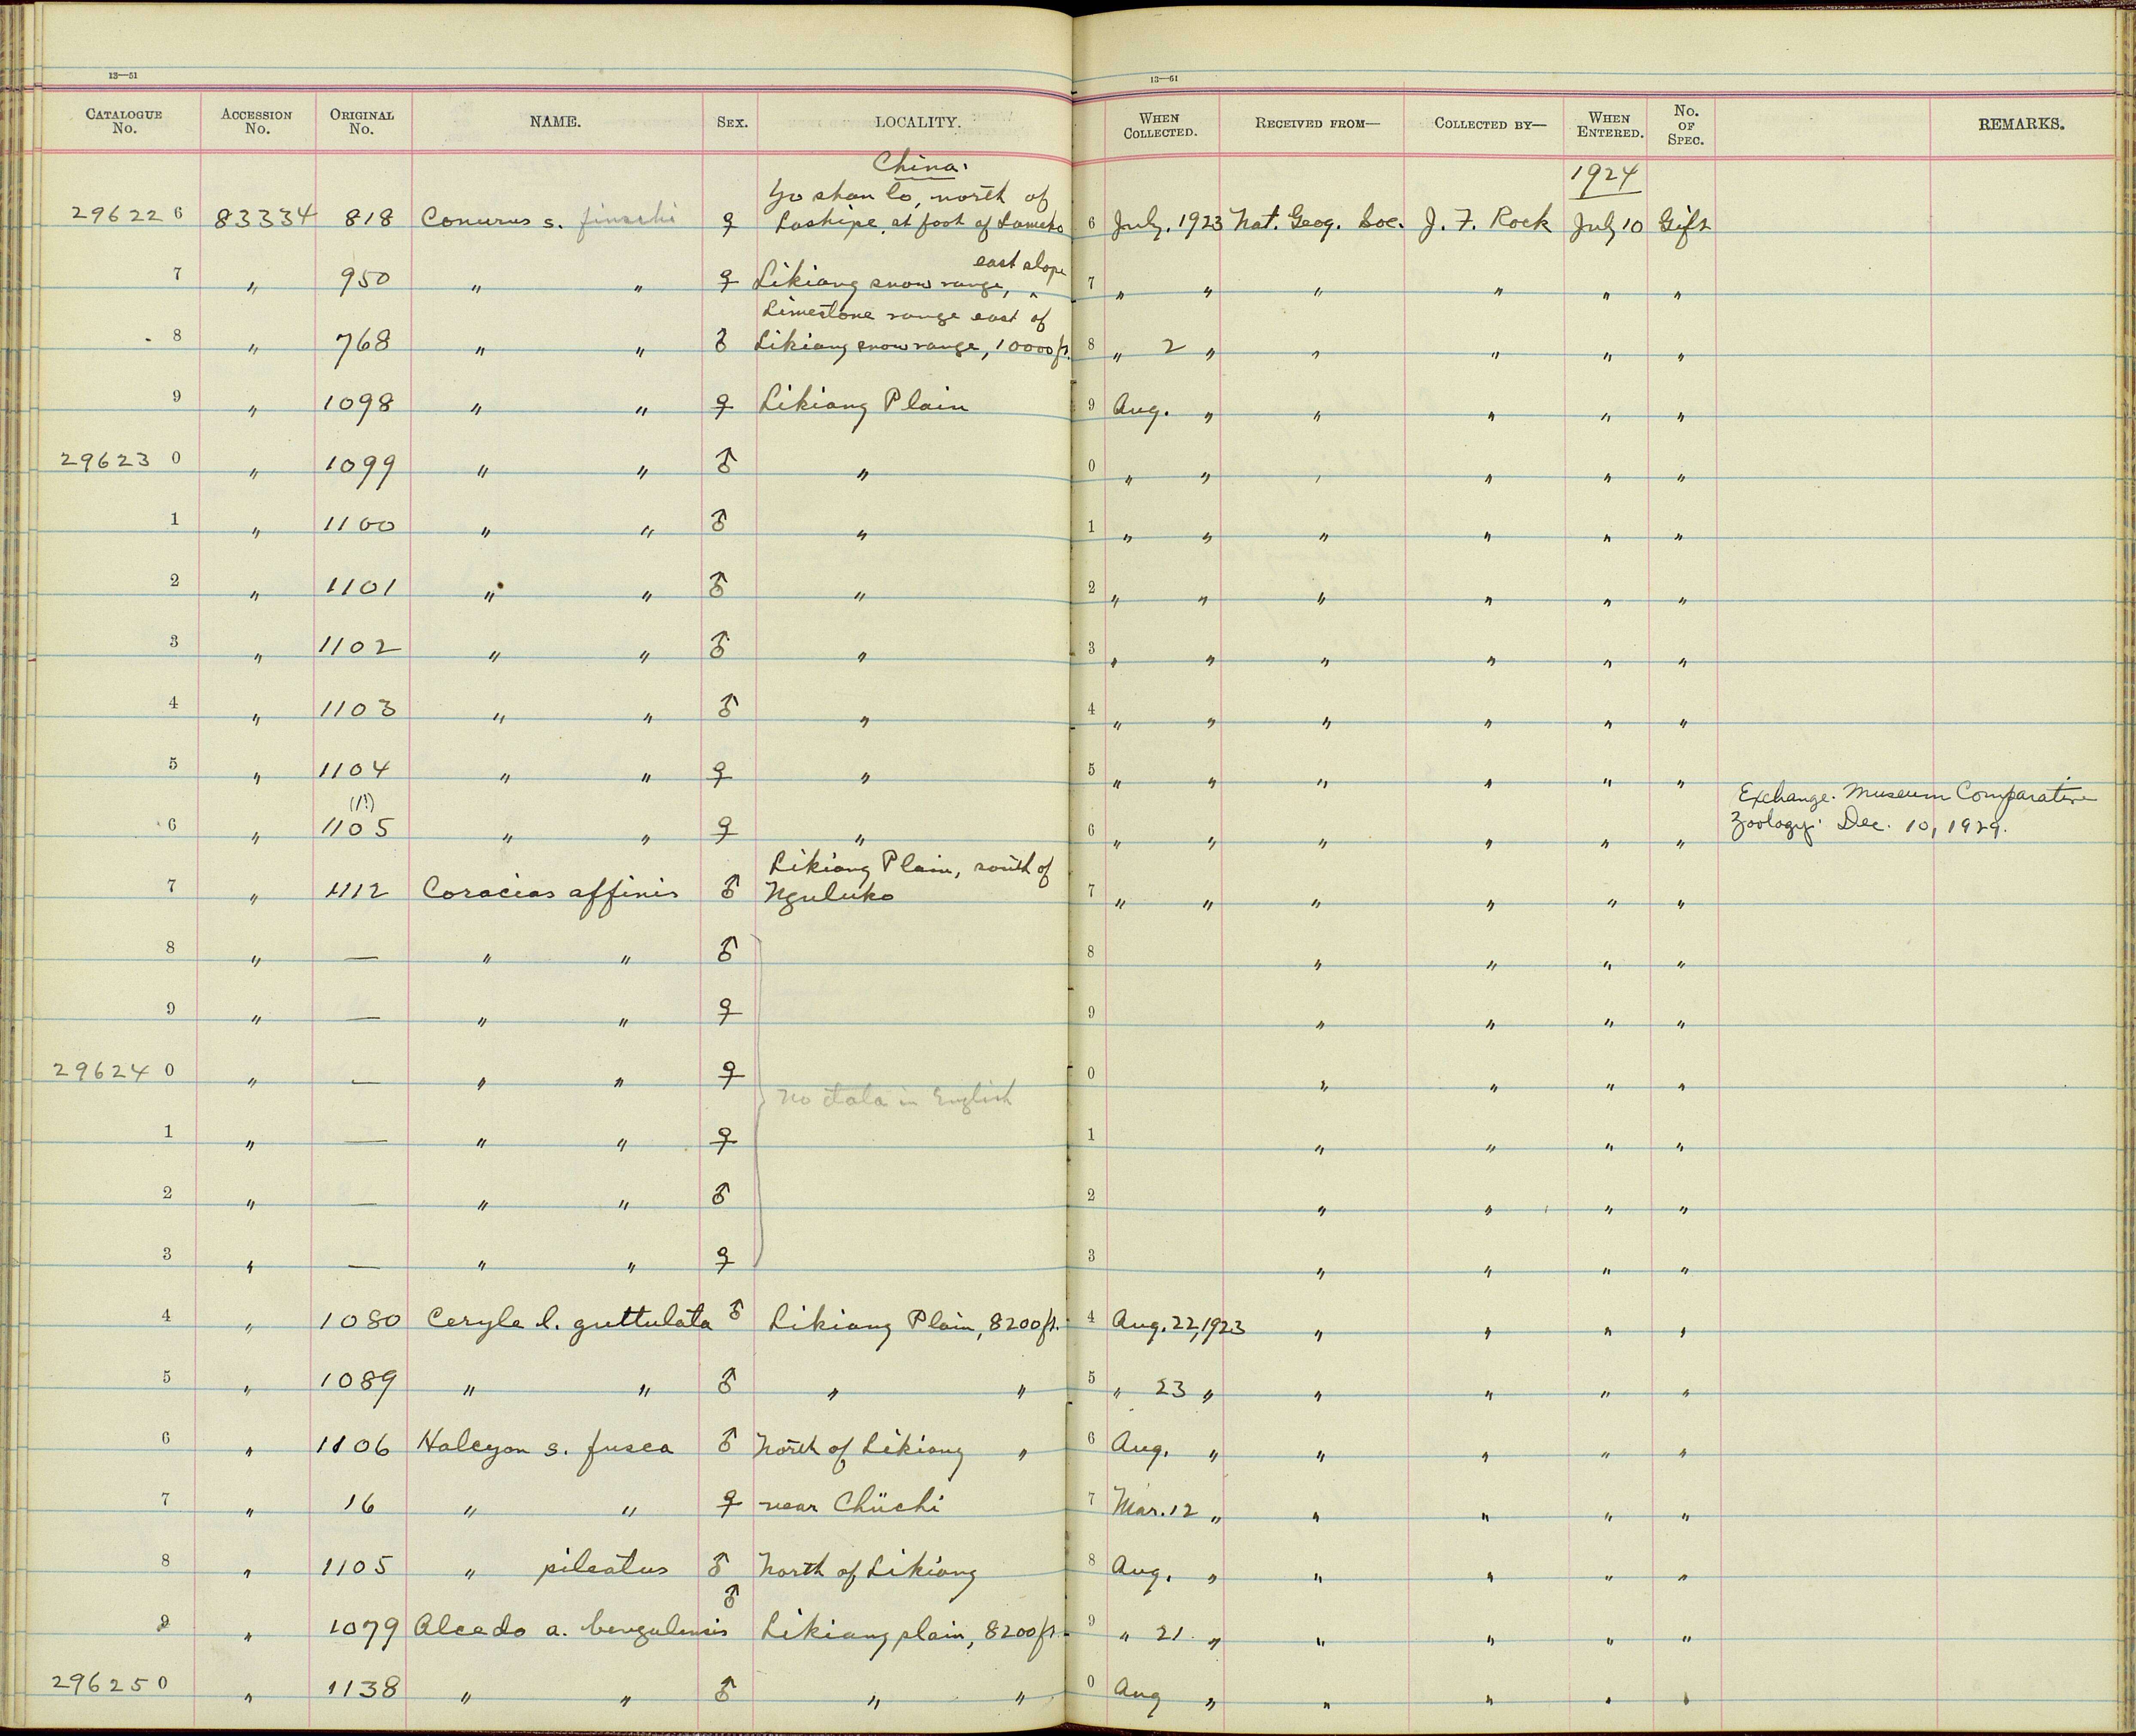 13—51 13—51
CATALOGUE No. ACCESSION No. ORIGINAL No. NAME. SEX. LOCALITY. WHEN COLLECTED. RECEIVED FROM— COLLECTED BY— WHEN ENTERED. No. OF SPEC. REMARKS.
China. 1924
Yo shan lo, north of
296226 83334 818 Conurus s. finschi ♀ Lashipe, at foot of 6 July, 1923 Nat. Geog. Soc. J. F. Rock July 10 Gift
east slope
7 " 950 " " ♀ Likiang snow range, ^ 7 " " " " " "
Limestone range east of
8 " 768 " " ♂ Likiang snow range, 10000 ft. 8 " 2 " " " " "
9 " 1098 " " ♀ Likiang Plain 9 Aug. " " " " "
296230 " 1099 " " ♂ " 0 " " " " " "
1 " 1100 " " ♂ " 1 " " " " " "
2 " 1101 " " ♂ " 2 " " " " " "
3 " 1102 " " ♂ " 3 " " " " " "
4 " 1103 " " ♂ " 4 " " " " " "
5 " 1104 " " ♀ " 5 " " " " " "
(1!) Exchange. Museum Comparative
6 " 1105 " " ♀ " 6 " " " " " " Zoology. Dec. 10, 1929.
Likiang Plain, south of
7 " 1112 Coracias affinis ♂ Nguluko 7 " " " " " "
8 " — " " ♂ 8 " " " "
9 " — " " ♀ 9 " " " "
296240 " — " " ♀ 0 " " " "
No data in English
1 " — " " ♀ 1 " " " "
2 " — " " ♂ 2 " " " "
3 " — " " ♀ 3 " " " "
4 " 1080 Ceryle l. guttulata ♂ Likiang Plain, 8200 ft. 4 Aug. 22, 1923 " " " "
5 " 1089 " " ♂ " " 5 " 23 " " " " "
6 " 1106 Halcyon s. fusca ♂ North of Likiang " 6 Aug. " " " " "
7 " 16 " " ♀ near Chüchi 7 Mar. 12 " " " " "
8 " 1105 " pileatus ♂ North of Likiang 8 Aug. " " " " "
9 " 1079 Alcedo a. bengalensis ♂ Likiang plain, 8200 ft. 9 " 21 " " " " "
296250 " 1138 " " ♂ " " 0 Aug " " " " "